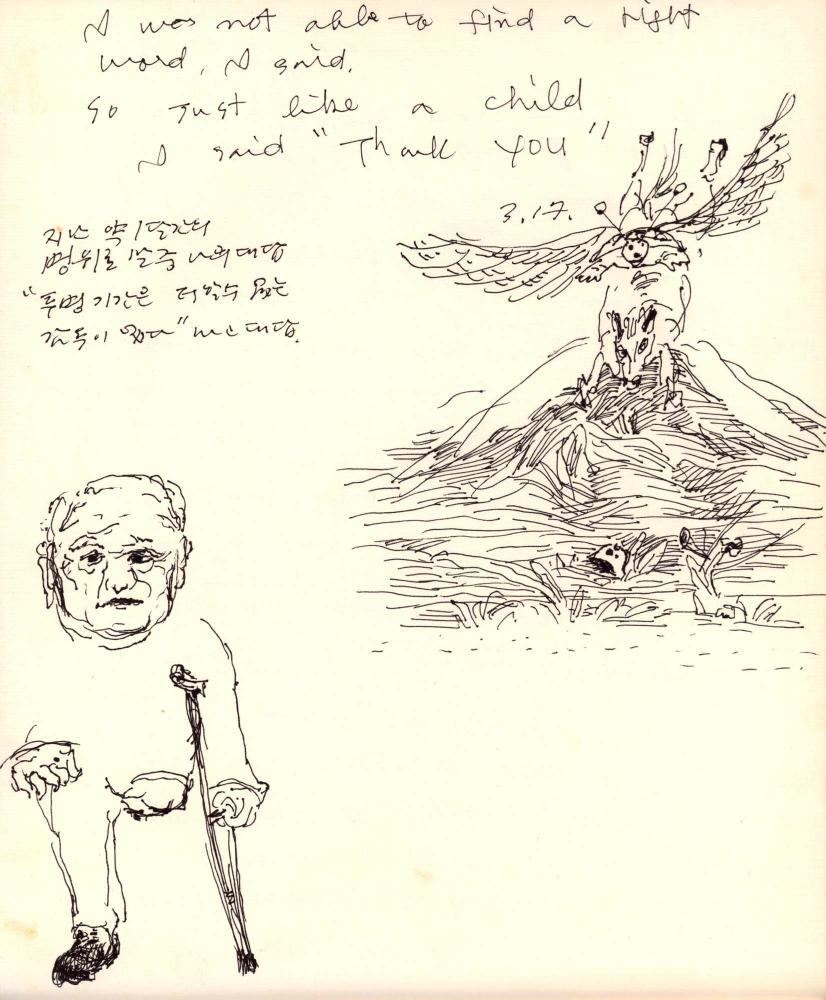 I was not able to find a right
word, I said.
So just like a child
I said "Thank YOU"
3.17.
지난 약 1달간의
나의 대답
"투병 기간은 더 할 수 없는
감독이 였다" 대답.